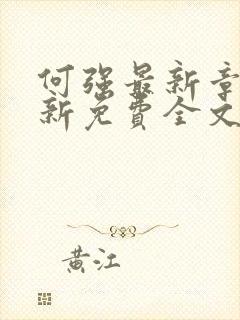 何强最新章
新免費全文
黄江